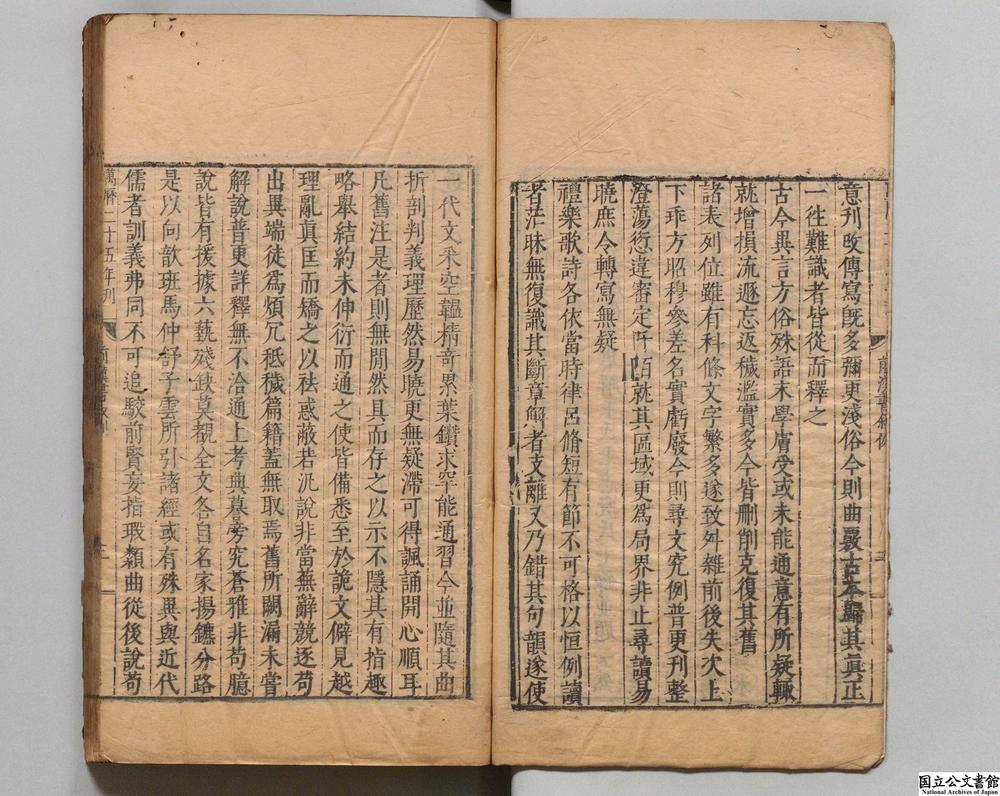 意刊改傳寫旣多彌更淺俗今則曲覈古本歸其眞正
一往難識者皆從而釋之
古今異言方俗殊語末學膚受或未能通意有所疑輒
就增損流遯忘返穢濫實多今皆刪削克復其舊
諸表列位雖有科條文字繁多遂致舛雜前後失次上
下乖方昭穆參差名實虧廢今則尋文究例普更刊整
澄蕩愆違審定阡陌就其區域更爲局界非止尋讀易
曉庶令轉寫無疑
禮樂歌詩各依當時律呂脩短有節不可格以恒例讀
者茫昧無復識其斷章解者支離又乃錯其句韻遂使
一代文采空韞精奇累葉鑽求罕能通習今並隨其曲
折剖判義理歷然易曉更無疑滯可得諷誦開心順耳
凡舊注是者則無間然具而存之以示不隱其有指趣
略舉結約未伸衍而通之使皆備悉至於詭文僻見越
理亂眞匡而矯之以祛惑蔽若汎說非當蕪辭競逐苟
出異端徒爲煩冗秪穢篇籍蓋無取焉舊所闕漏未嘗
解說普更詳釋無不洽通上考典謨旁究蒼雅非苟臆
說皆有援據六藝殘缺莫覩全文各自名家揚鑣分路
是以向歆班馬仲舒子雲所引諸經或有殊異與近代
儒者訓義弗同不可追駮前賢妄指瑕纇曲從後說苟
萬曆二十五年刊
前漢書敘例
国立公文書館
National Archives of Japan